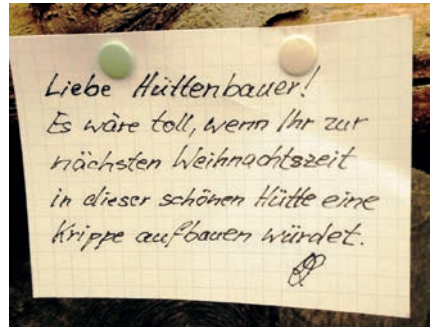 Liebe Hüttenbauer!
Es wäre toll, wenn Ihr zur
nächsten Weihnachtszeit
in dieser schönen Hütte eine
Krippe aufbauen würdet.